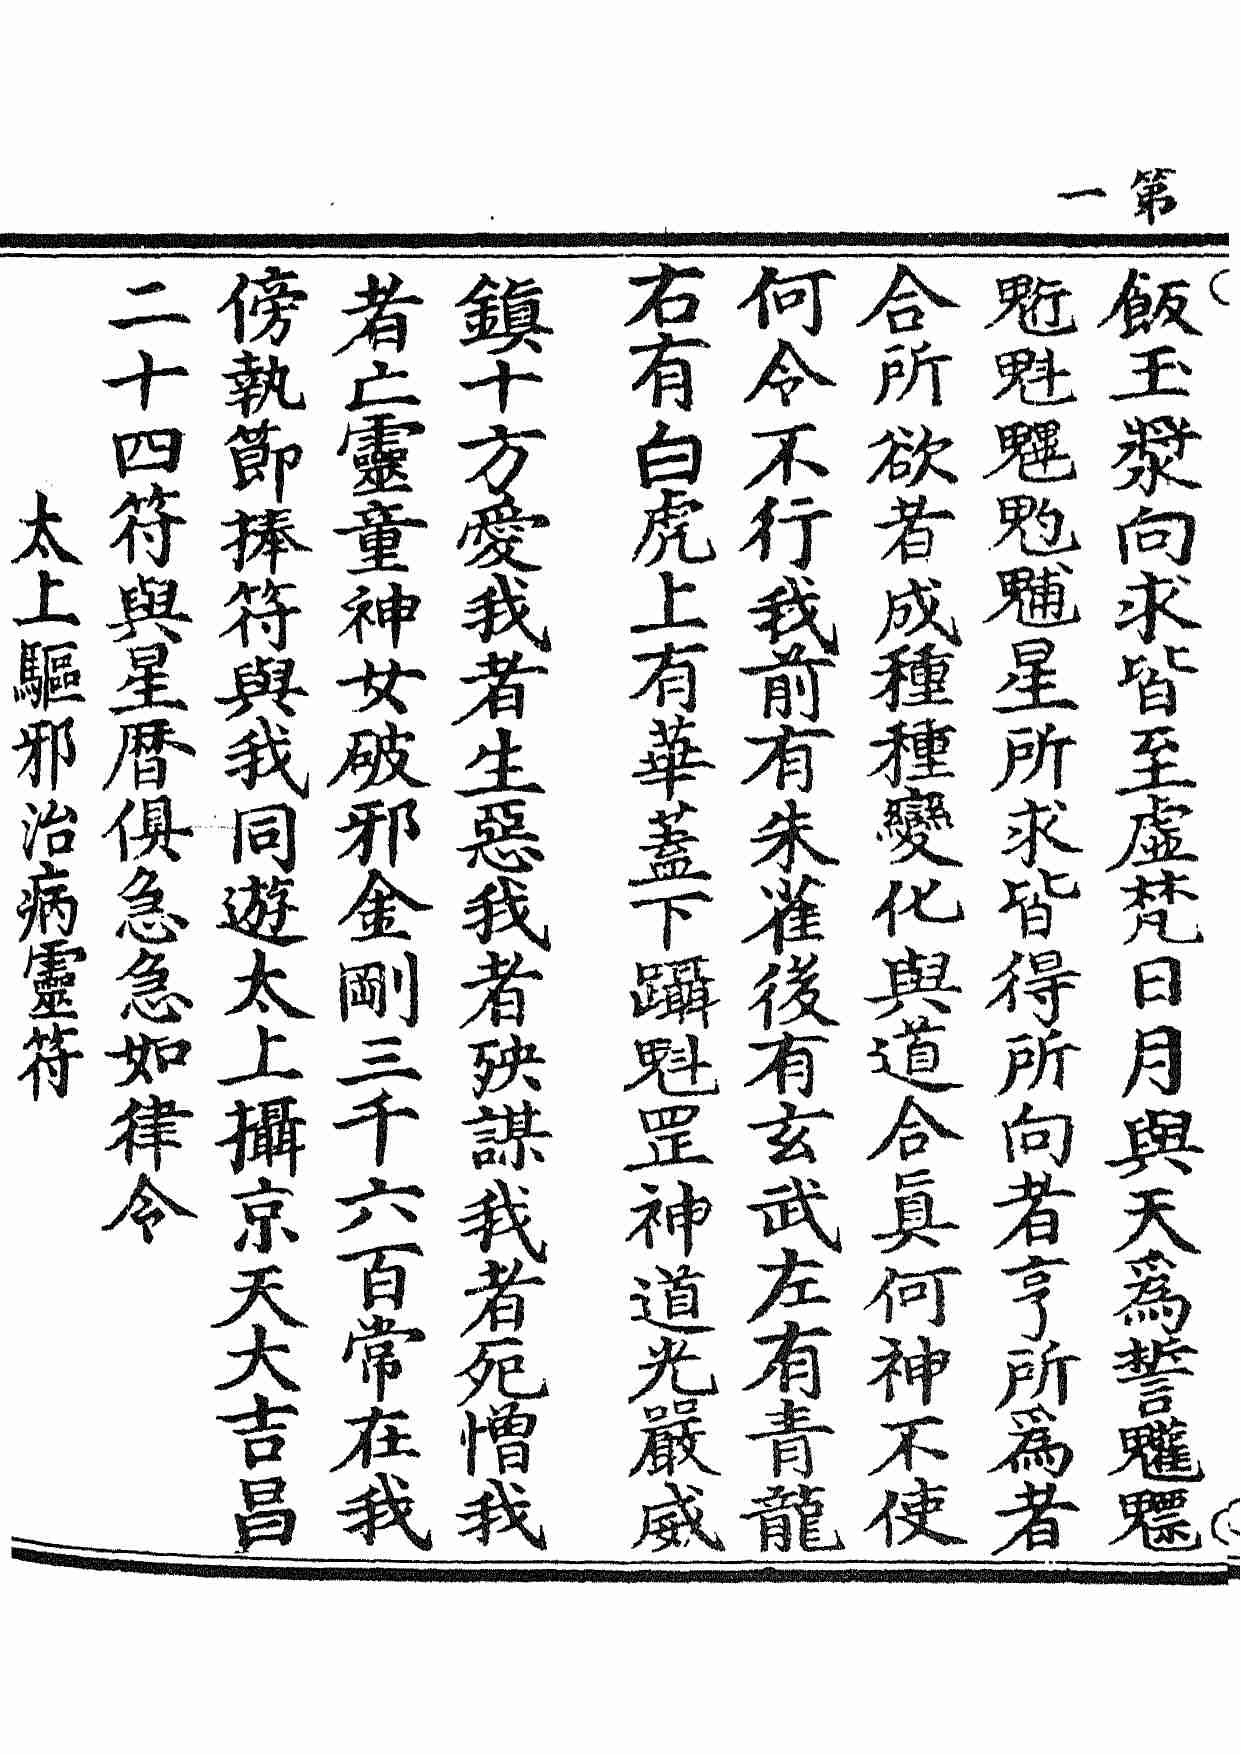 第一
飯玉漿向求皆至虛梵日月與天爲誓魓魒
魁魁魓魡䰷星所求皆得所向者亨所爲者
合所欲者成種種變化與道合眞何神不使
何令不行我前有朱雀後有玄武左有青龍
右有白虎上有華蓋下躡魁罡神道光嚴威
鎭十方愛我者生惡我者殃謀我者死憎我
者亡靈童神女破邪金剛三千六百常在我
傍執節捧符與我同遊太上攝京天大吉昌
二十四符與星曆俱急急如律令
太上驅邪治病靈符